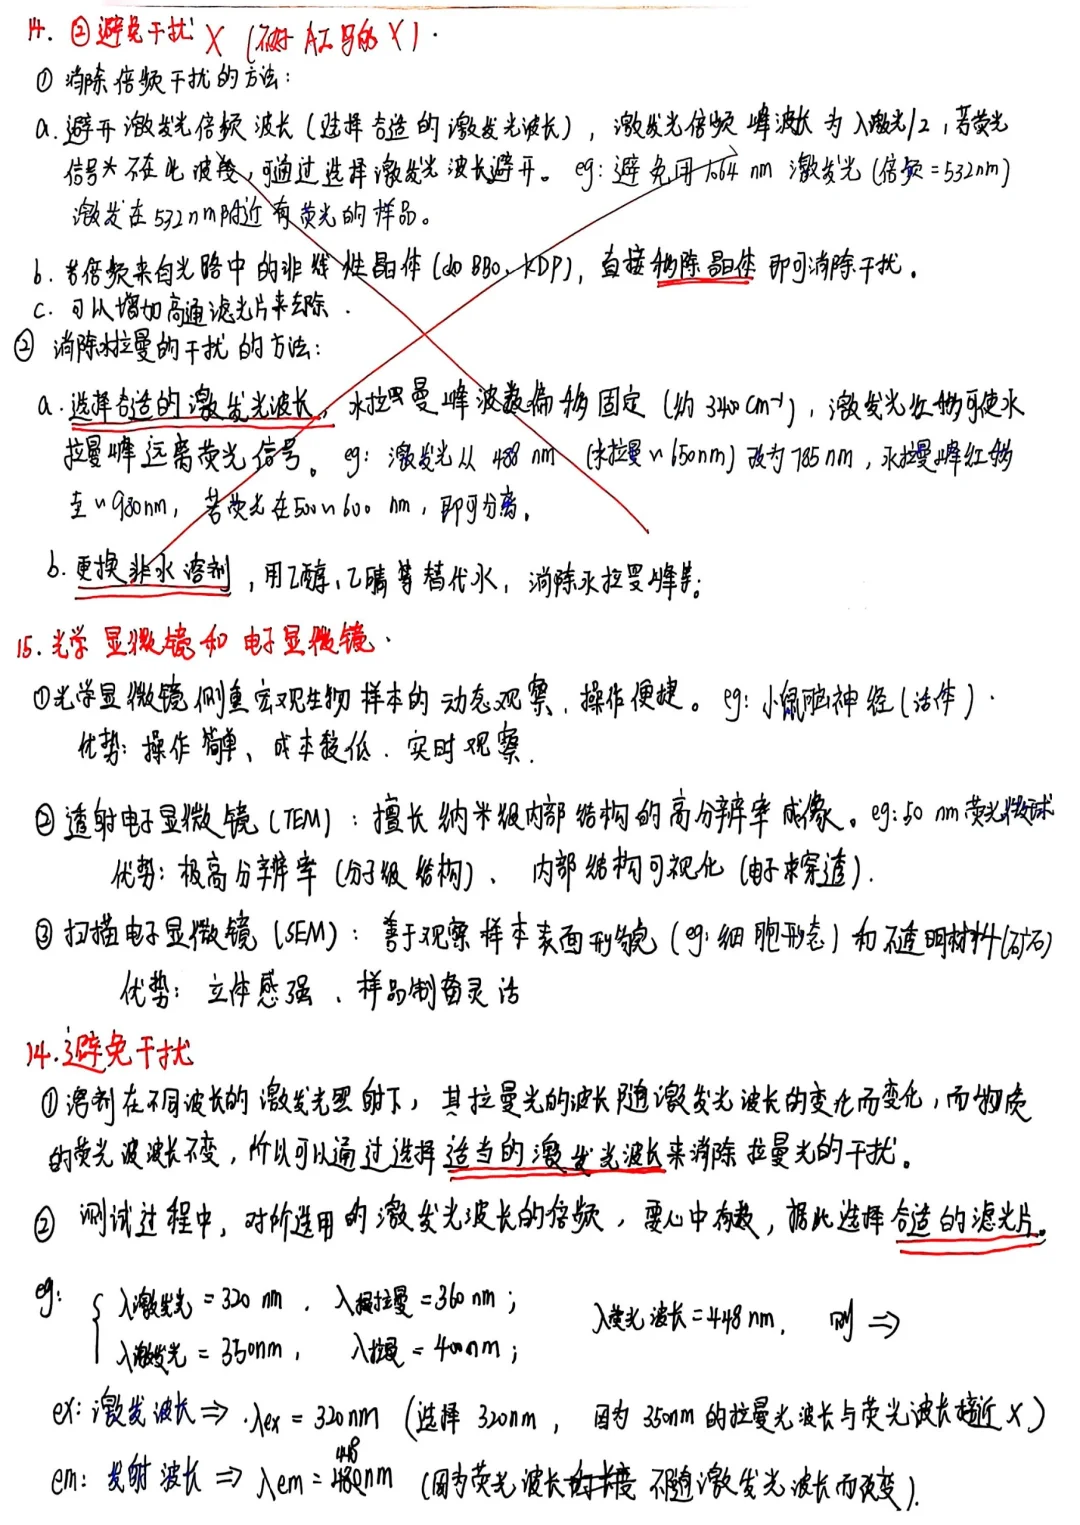 14. ②避免干扰 X (AI写的X).
① 消除倍频干扰的方法:
a. 避开激发光倍频波长(选择合适的激发光波长), 激发光倍频峰波长为 λ激光/2, 若荧光
信号不在此波段, 可通过选择激发光波长避开。 eg: 避免用1064 nm 激发光 (倍频=532nm)
激发在532nm附近有荧光的样品。
b. 若倍频来自光路中的非线性晶体(如BBO、KDP), 直接移除晶体即可消除干扰。
c. 可以增加高通滤光片来去除.
② 消除水拉曼的干扰的方法:
a. 选择合适的激发光波长, 水拉曼峰波数偏移固定 (约3400cm⁻¹), 激发光红移可使水
拉曼峰远离荧光信号。 eg: 激发光从 488 nm (水拉曼~650nm) 改为785nm, 水拉曼峰红移
至~980nm, 若荧光在500~600 nm, 即可分离。
b. 更换非水溶剂, 用乙醇、乙腈等替代水, 消除水拉曼峰等;
15. 光学显微镜和电子显微镜.
①光学显微镜侧重宏观生物样本的动态观察, 操作便捷。 eg: 小鼠脑神经(活体).
优势: 操作简单、成本较低. 实时观察.
② 透射电子显微镜 (TEM): 擅长纳米级内部结构的高分辨率成像。eg: 50 nm荧光微球
优势: 极高分辨率 (分子级结构)、 内部结构可视化 (电子束穿透).
③ 扫描电子显微镜 (SEM): 善于观察样本表面形貌 (eg: 细胞形态) 和不透明材料(矿石)
优势: 立体感强、样品制备灵活
14. 避免干扰
① 溶剂在不同波长的激发光照射下, 其拉曼光的波长随激发光波长的变化而变化, 而物质
的荧光波波长不变, 所以可以通过选择适当的激发光波长来消除拉曼光的干扰。
② 测试过程中, 对所选用的激发光波长的倍频, 要心中有数, 据此选择合适的滤光片。
eg: { λ激发光 = 320 nm . λ拉曼 = 360 nm; λ荧光波长=448 nm. 则 ⇒
λ激发光 = 350nm, λ拉曼 = 400nm;
ex: 激发波长 ⇒ .λex = 320nm (选择 320nm, 因为 350nm 的拉曼光波长与荧光波长接近 X)
em: 发射波长 ⇒ λem = 448nm (因为荧光波长不随激发光波长而改变).